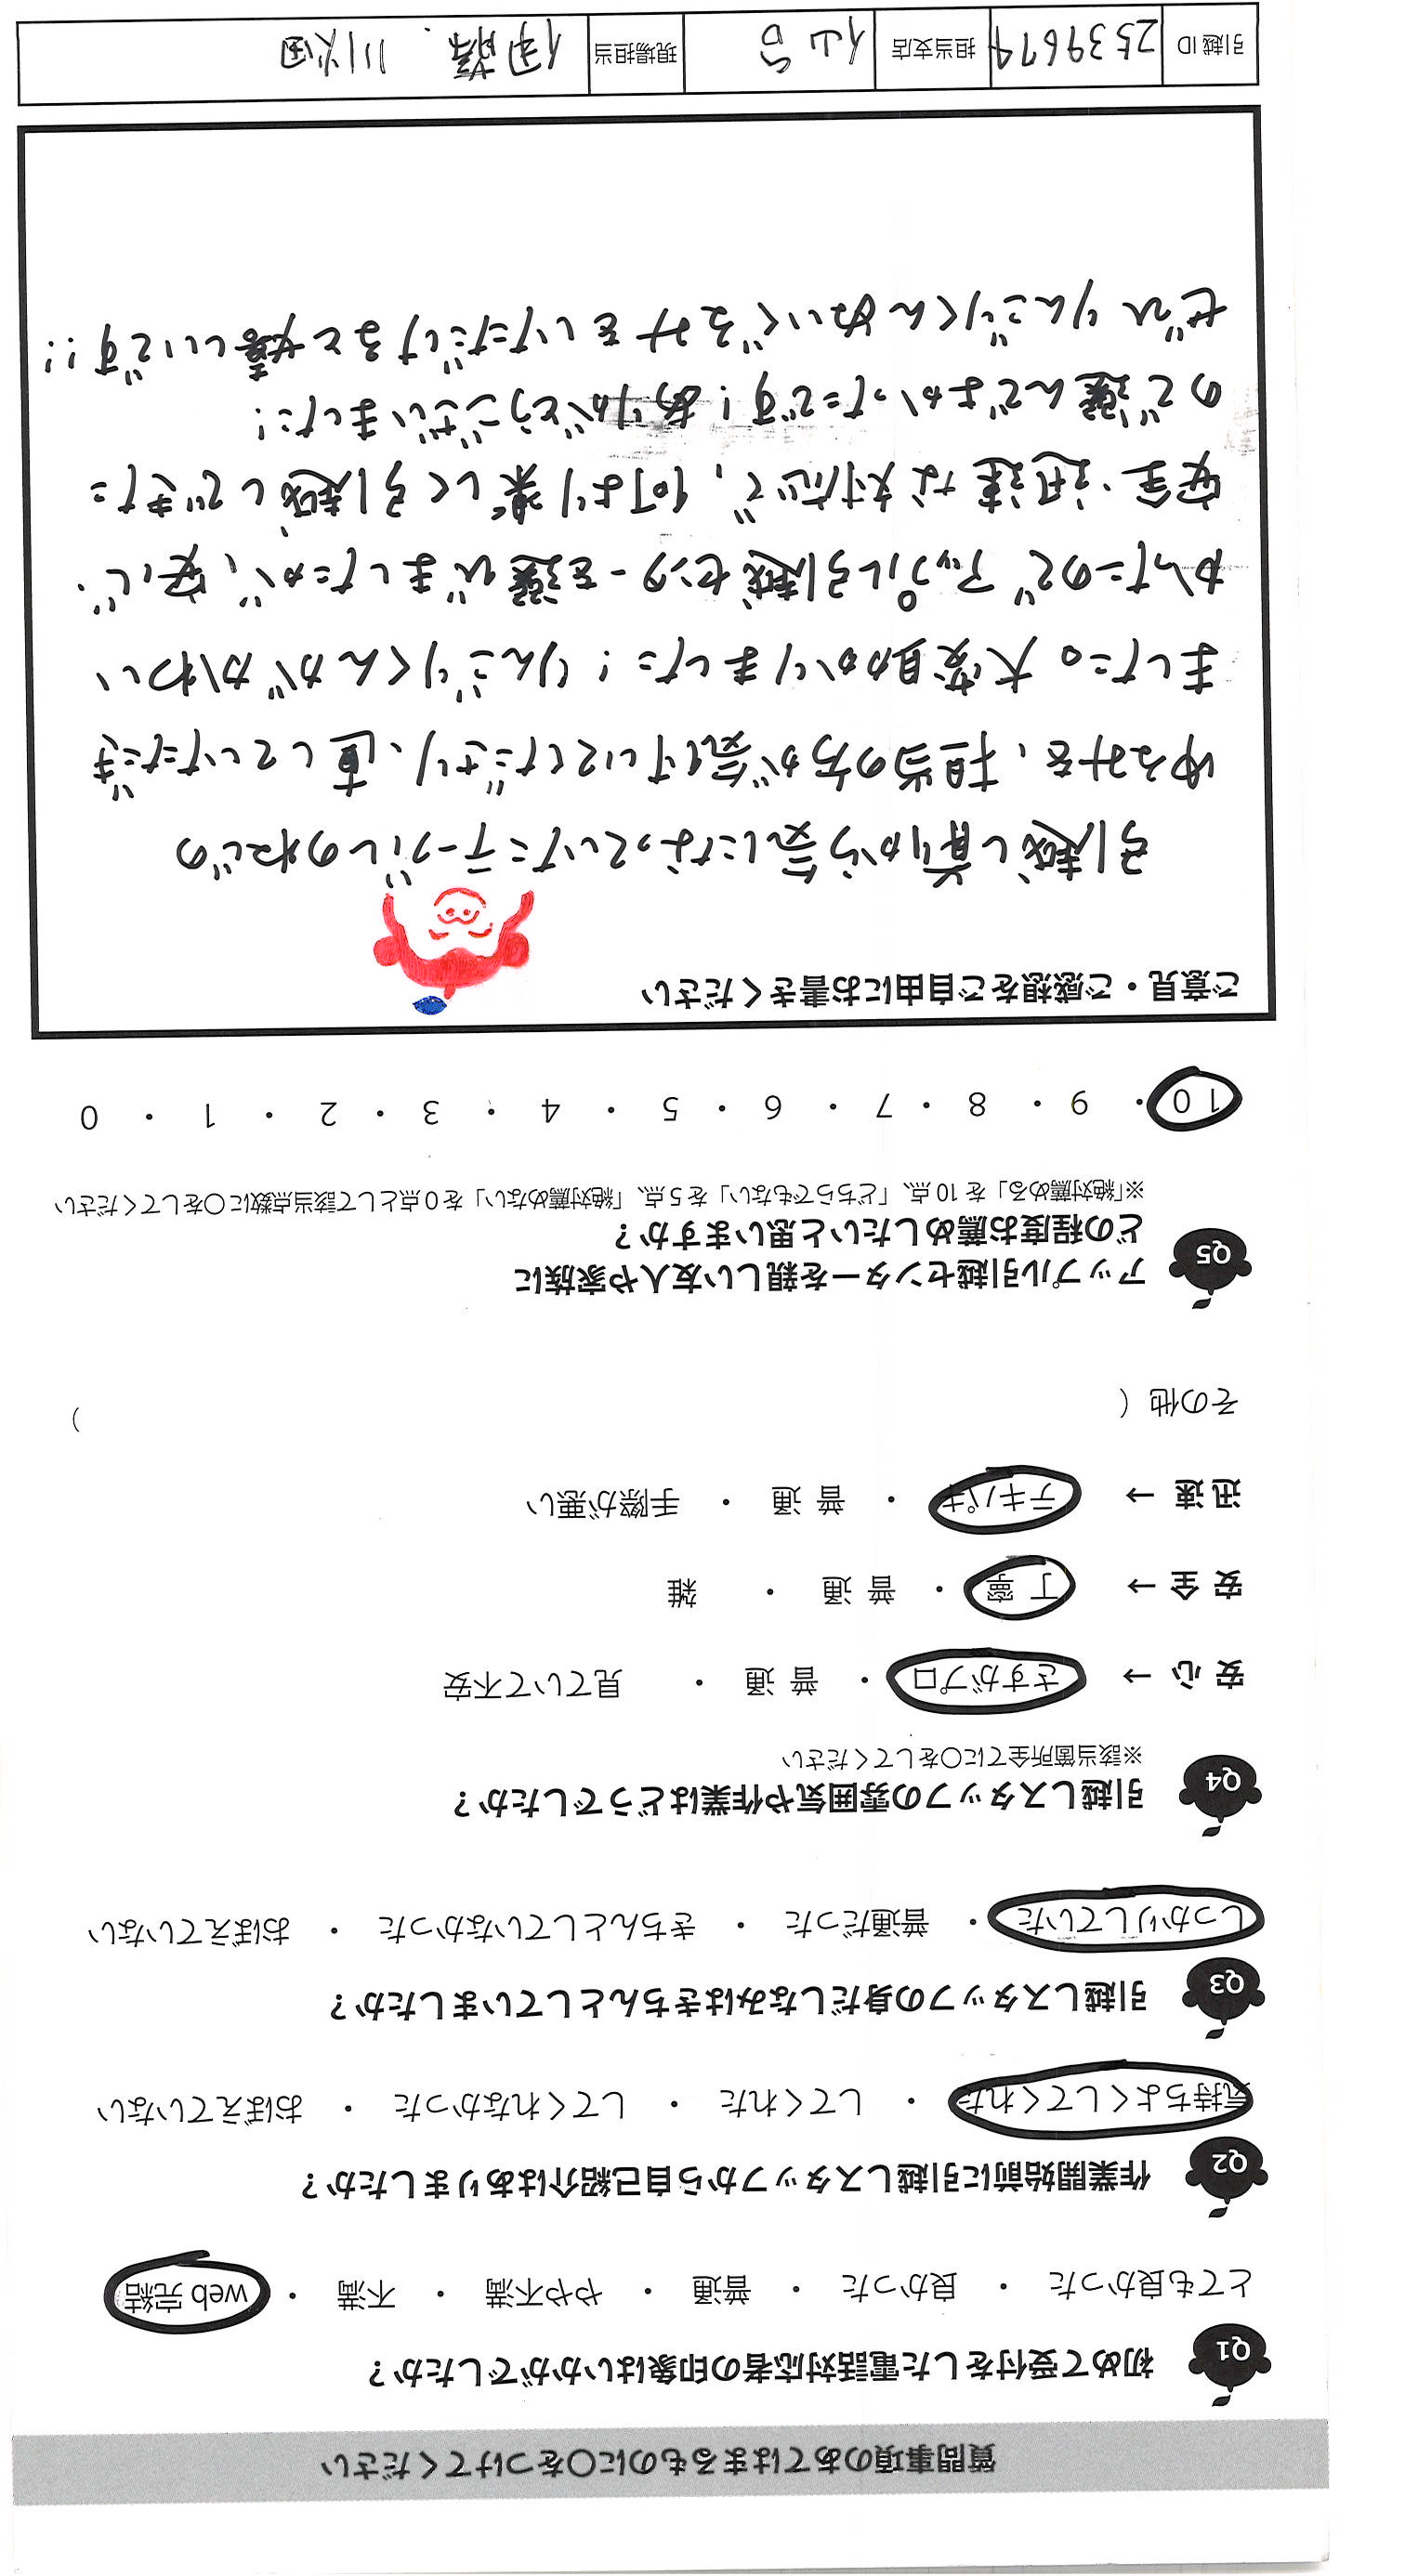 質問事項のあてはまるものに〇をつけてください
Q1 初めて受付をした電話対応者の印象はいかがでしたか？
とても良かった ・ 良かった ・ 普通 ・ やや不満 ・ 不満 ・ web 完結
Q2 作業開始前に引越しスタッフから自己紹介はありましたか？
気持ちよくしてくれた ・ してくれた ・ してくれなかった ・ おぼえていない
Q3 引越しスタッフの身だしなみはきちんとしていましたか？
しっかりしていた ・ 普通だった ・ きちんとしていなかった ・ おぼえていない
Q4 引越しスタッフの雰囲気や作業はどうでしたか？
※該当箇所全てに〇をしてください
安 心 → さすがプロ ・ 普 通 ・ 見ていて不安
安 全 → 丁 寧 ・ 普 通 ・ 雑
迅 速 → テキパキ ・ 普 通 ・ 手際が悪い
その他（ ）
Q5 アップル引越センターを親しい友人や家族に
どの程度お薦めしたいと思いますか？
※「絶対薦める」を 10 点、「どちらでもない」を 5 点、「絶対薦めない」を 0 点として該当点数に〇をしてください
10 ・ 9 ・ 8 ・ 7 ・ 6 ・ 5 ・ 4 ・ 3 ・ 2 ・ 1 ・ 0
ご意見・ご感想をご自由にお書きください
引越し前から気になっていたテーブルのねじの
ゆるみを、担当の方が気付いてくださり、直していただき
ました。大変助かりました！りんごりくんがかわい
かったのでアップル引越センターを選びましたが、安心・
安全・迅速な対応で、何より楽しく引越しできた
ので選んでよかったです！ありがとうございました！
ぜひりんごりくんぬいぐるみをいただけると嬉しいです!!
引越 ID 2539674 担当支店 仙台 現場担当 伊藤、川